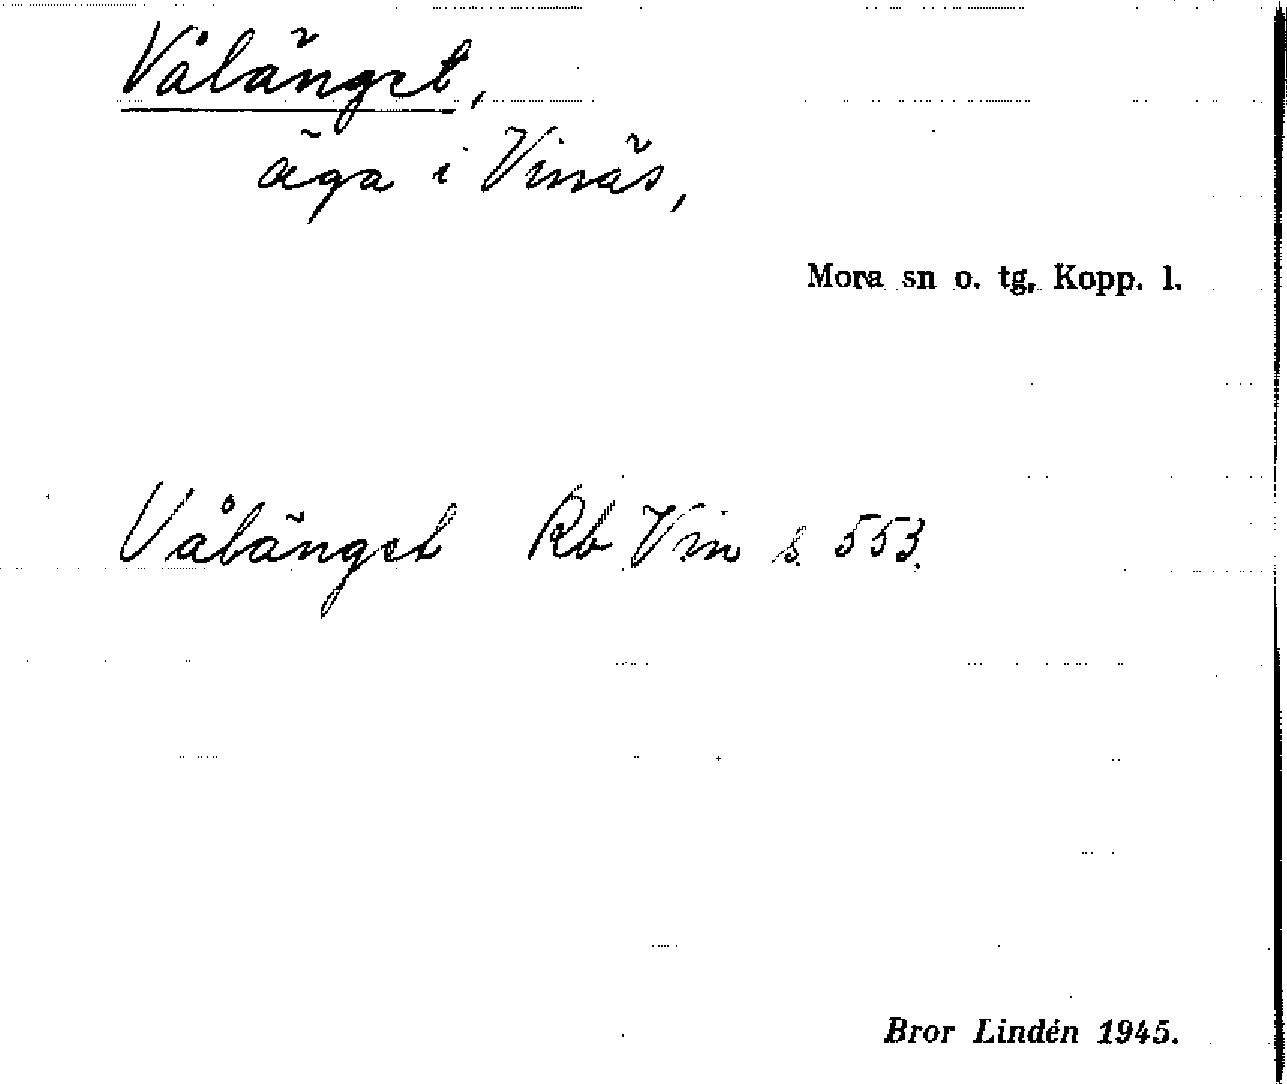 Vålänget,
äga i Vinäs,
Mora sn o. tg. Kopp. l.
Vålänget Rb Vin s. 553.
Bror Lindén 1945.